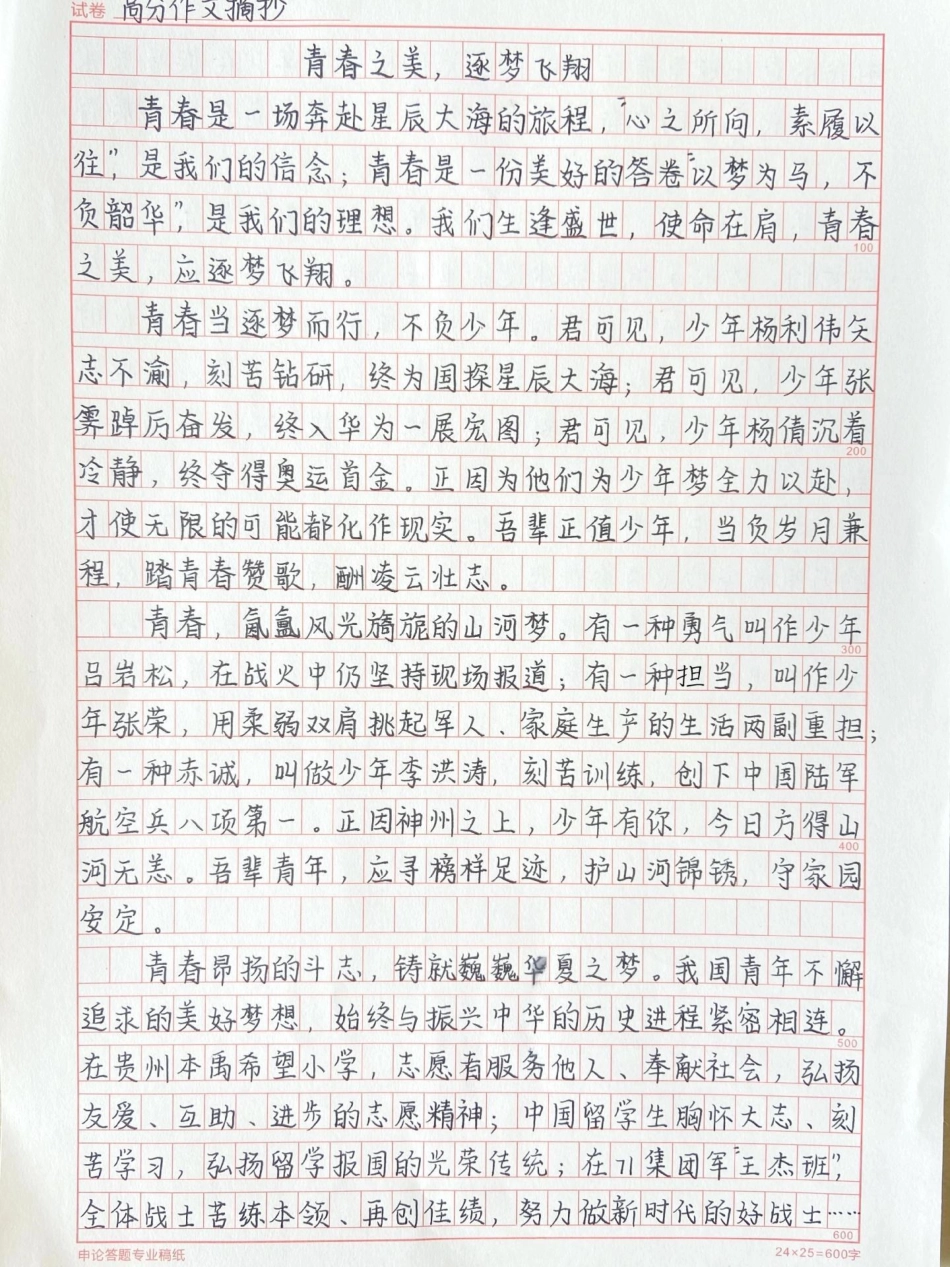 试卷 高分作文摘抄
青春之美，逐梦飞翔
青春是一场奔赴星辰大海的旅程，“心之所向，素履以
往”，是我们的信念；青春是一份美好的答卷“以梦为马，不
负韶华”，是我们的理想。我们生逢盛世，使命在肩，青春
100
之美，应逐梦飞翔。
青春当逐梦而行，不负少年。君可见，少年杨利伟矢
志不渝，刻苦钻研，终为国探星辰大海；君可见，少年张
霁踔厉奋发，终入华为一展宏图；君可见，少年杨倩沉着
200
冷静，终夺得奥运首金。正因为他们为少年梦全力以赴，
才使无限的可能都化作现实。吾辈正值少年，当负岁月兼
程，踏青春赞歌，酬凌云壮志。
青春，氤氲风光旖旎的山河梦。有一种勇气叫作少年
300
吕岩松，在战火中仍坚持现场报道；有一种担当，叫作少
年张荣，用柔弱双肩挑起军人、家庭生产的生活两副重担；
有一种赤诚，叫做少年李洪涛，刻苦训练，创下中国陆军
航空兵八项第一。正因神州之上，少年有你，今日方得山
400
河无恙。吾辈青年，应寻榜样足迹，护山河锦锈，守家园
安定。
青春昂扬的斗志，铸就巍巍华夏之梦。我国青年不懈
追求的美好梦想，始终与振兴中华的历史进程紧密相连。
500
在贵州本禹希望小学，志愿者服务他人、奉献社会，弘扬
友爱、互助、进步的志愿精神；中国留学生胸怀大志、刻
苦学习，弘扬留学报国的光荣传统；在71集团军“王杰班”，
全体战士苦练本领、再创佳绩，努力做新时代的好战士……
600
申论答题专业稿纸 24×25=600字